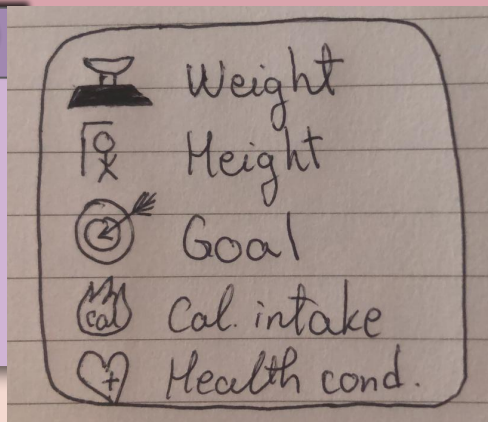 Weight
Height
Goal
cal Cal. intake
Health cond.